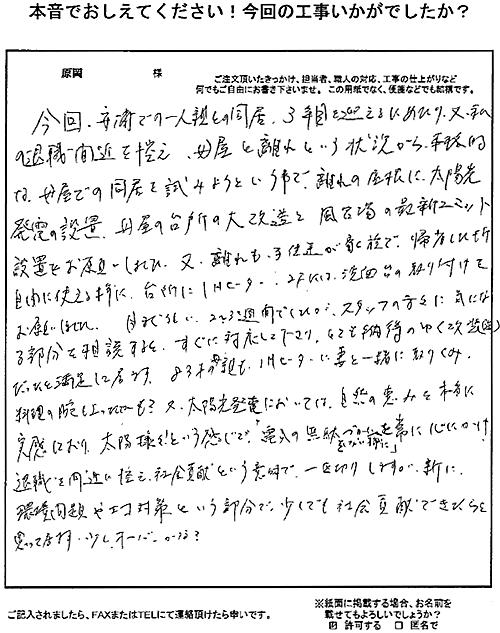 本音でおしえてください！今回の工事いかがでしたか？
原岡 様
ご注文頂いたきっかけ、担当者、職人の対応、工事の仕上がりなど
何でもご自由にお書き下さいませ。この用紙でなく、便箋などでも結構です。
今回、安浦での一人親との同居、3年目を迎えるにあたり、又、私
の退職間近を控え、母屋と離れという状況から、本格的
な、母屋での同居を試みようという事で、離れの屋根に、太陽光
発電の設置、母屋の台所の大改造と風呂場の最新ユニット
設置をお願いしました。又、離れも、子供達が家族で、帰省した折
自由に使える様に、台所にIHヒーター、2Fには洗面台の取り付けを
お願いしました。2〜3週間でしたが、スタッフの方々に気にな
る部分を相談すると、すぐに対応して下さり、とても納得のゆく改造
だったと満足して居ます。83才の親も、IHヒーターに妻と一緒に取りくみ、
料理の腕も上ったかも？又、太陽光発電においては、自然の恵みを本当に
実感しており、太陽様々という感じで、「電気の無駄づかいをしない様に」を常に心にかけ、
退職を間近に控え、社会貢献という意味で、一区切りしますが、新に、
環境問題やエコ対策という部分で、少しでも社会貢献できたらと
思ってます。少しオーバーかな？
ご記入されましたら、FAXまたはTELにて連絡頂けたら幸いです。
※紙面に掲載する場合、お名前を
載せてもよろしいでしょうか？
☑ 許可する □ 匿名で